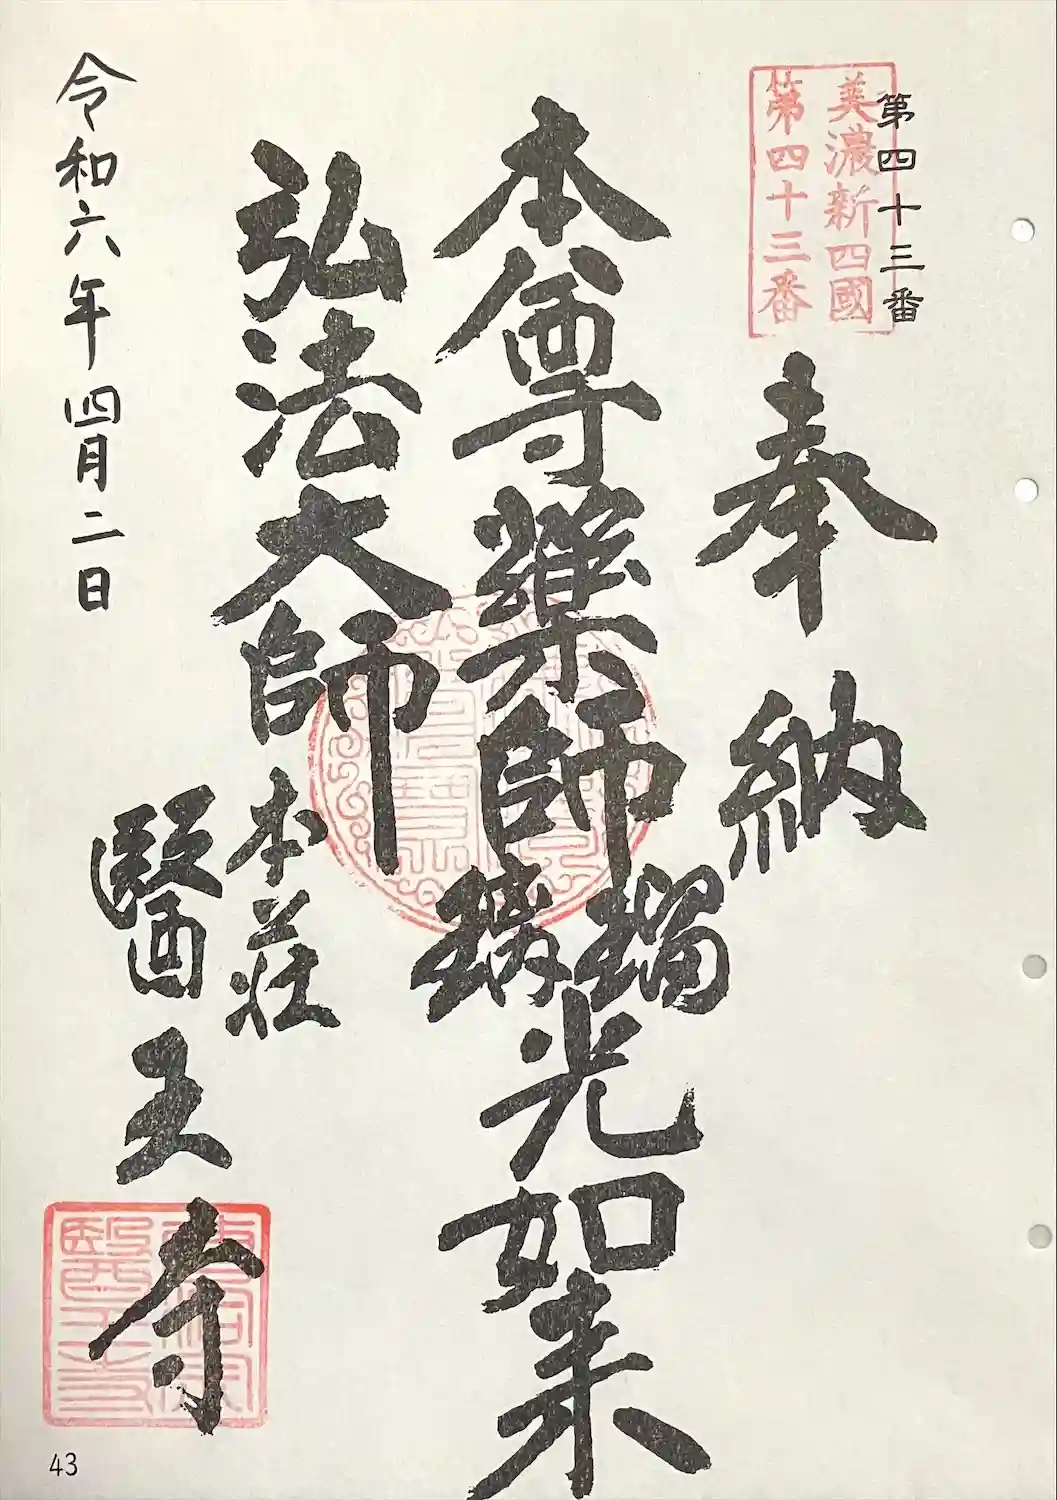 第四十三番
美濃新四國
第四十三番
奉納
本尊藥師瑠璃光如来
弘法大師
本荘
醫王寺
令和六年四月二日
43